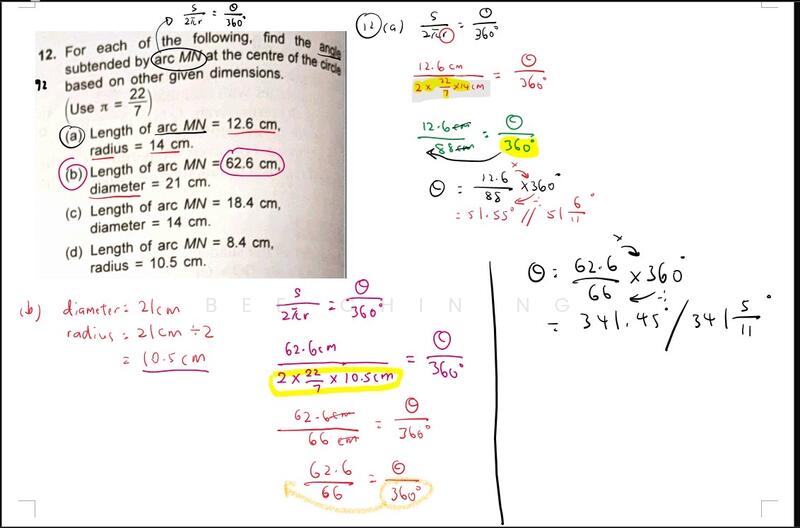 s/2πr = θ/360°
12. For each of the following, find the angle
subtended by arc MN at the centre of the circle
based on other given dimensions.
(Use π = 22/7)
(a) Length of arc MN = 12.6 cm,
radius = 14 cm.
(b) Length of arc MN = 62.6 cm,
diameter = 21 cm.
(c) Length of arc MN = 18.4 cm,
diameter = 14 cm.
(d) Length of arc MN = 8.4 cm,
radius = 10.5 cm.
12 (a) s/2πr = θ/360°
12.6 cm / 2 × 22/7 × 14 cm = θ/360°
12.6 cm / 88 cm = θ/360°
θ = 12.6/88 × 360°
= 51.55° // 51 6/11°
(b) diameter = 21 cm
radius = 21 cm ÷ 2
= 10.5 cm
s/2πr = θ/360°
62.6 cm / 2 × 22/7 × 10.5 cm = θ/360°
62.6 cm / 66 cm = θ/360°
62.6/66 = θ/360°
θ = 62.6/66 × 360°
= 341.45° / 341 5/11°